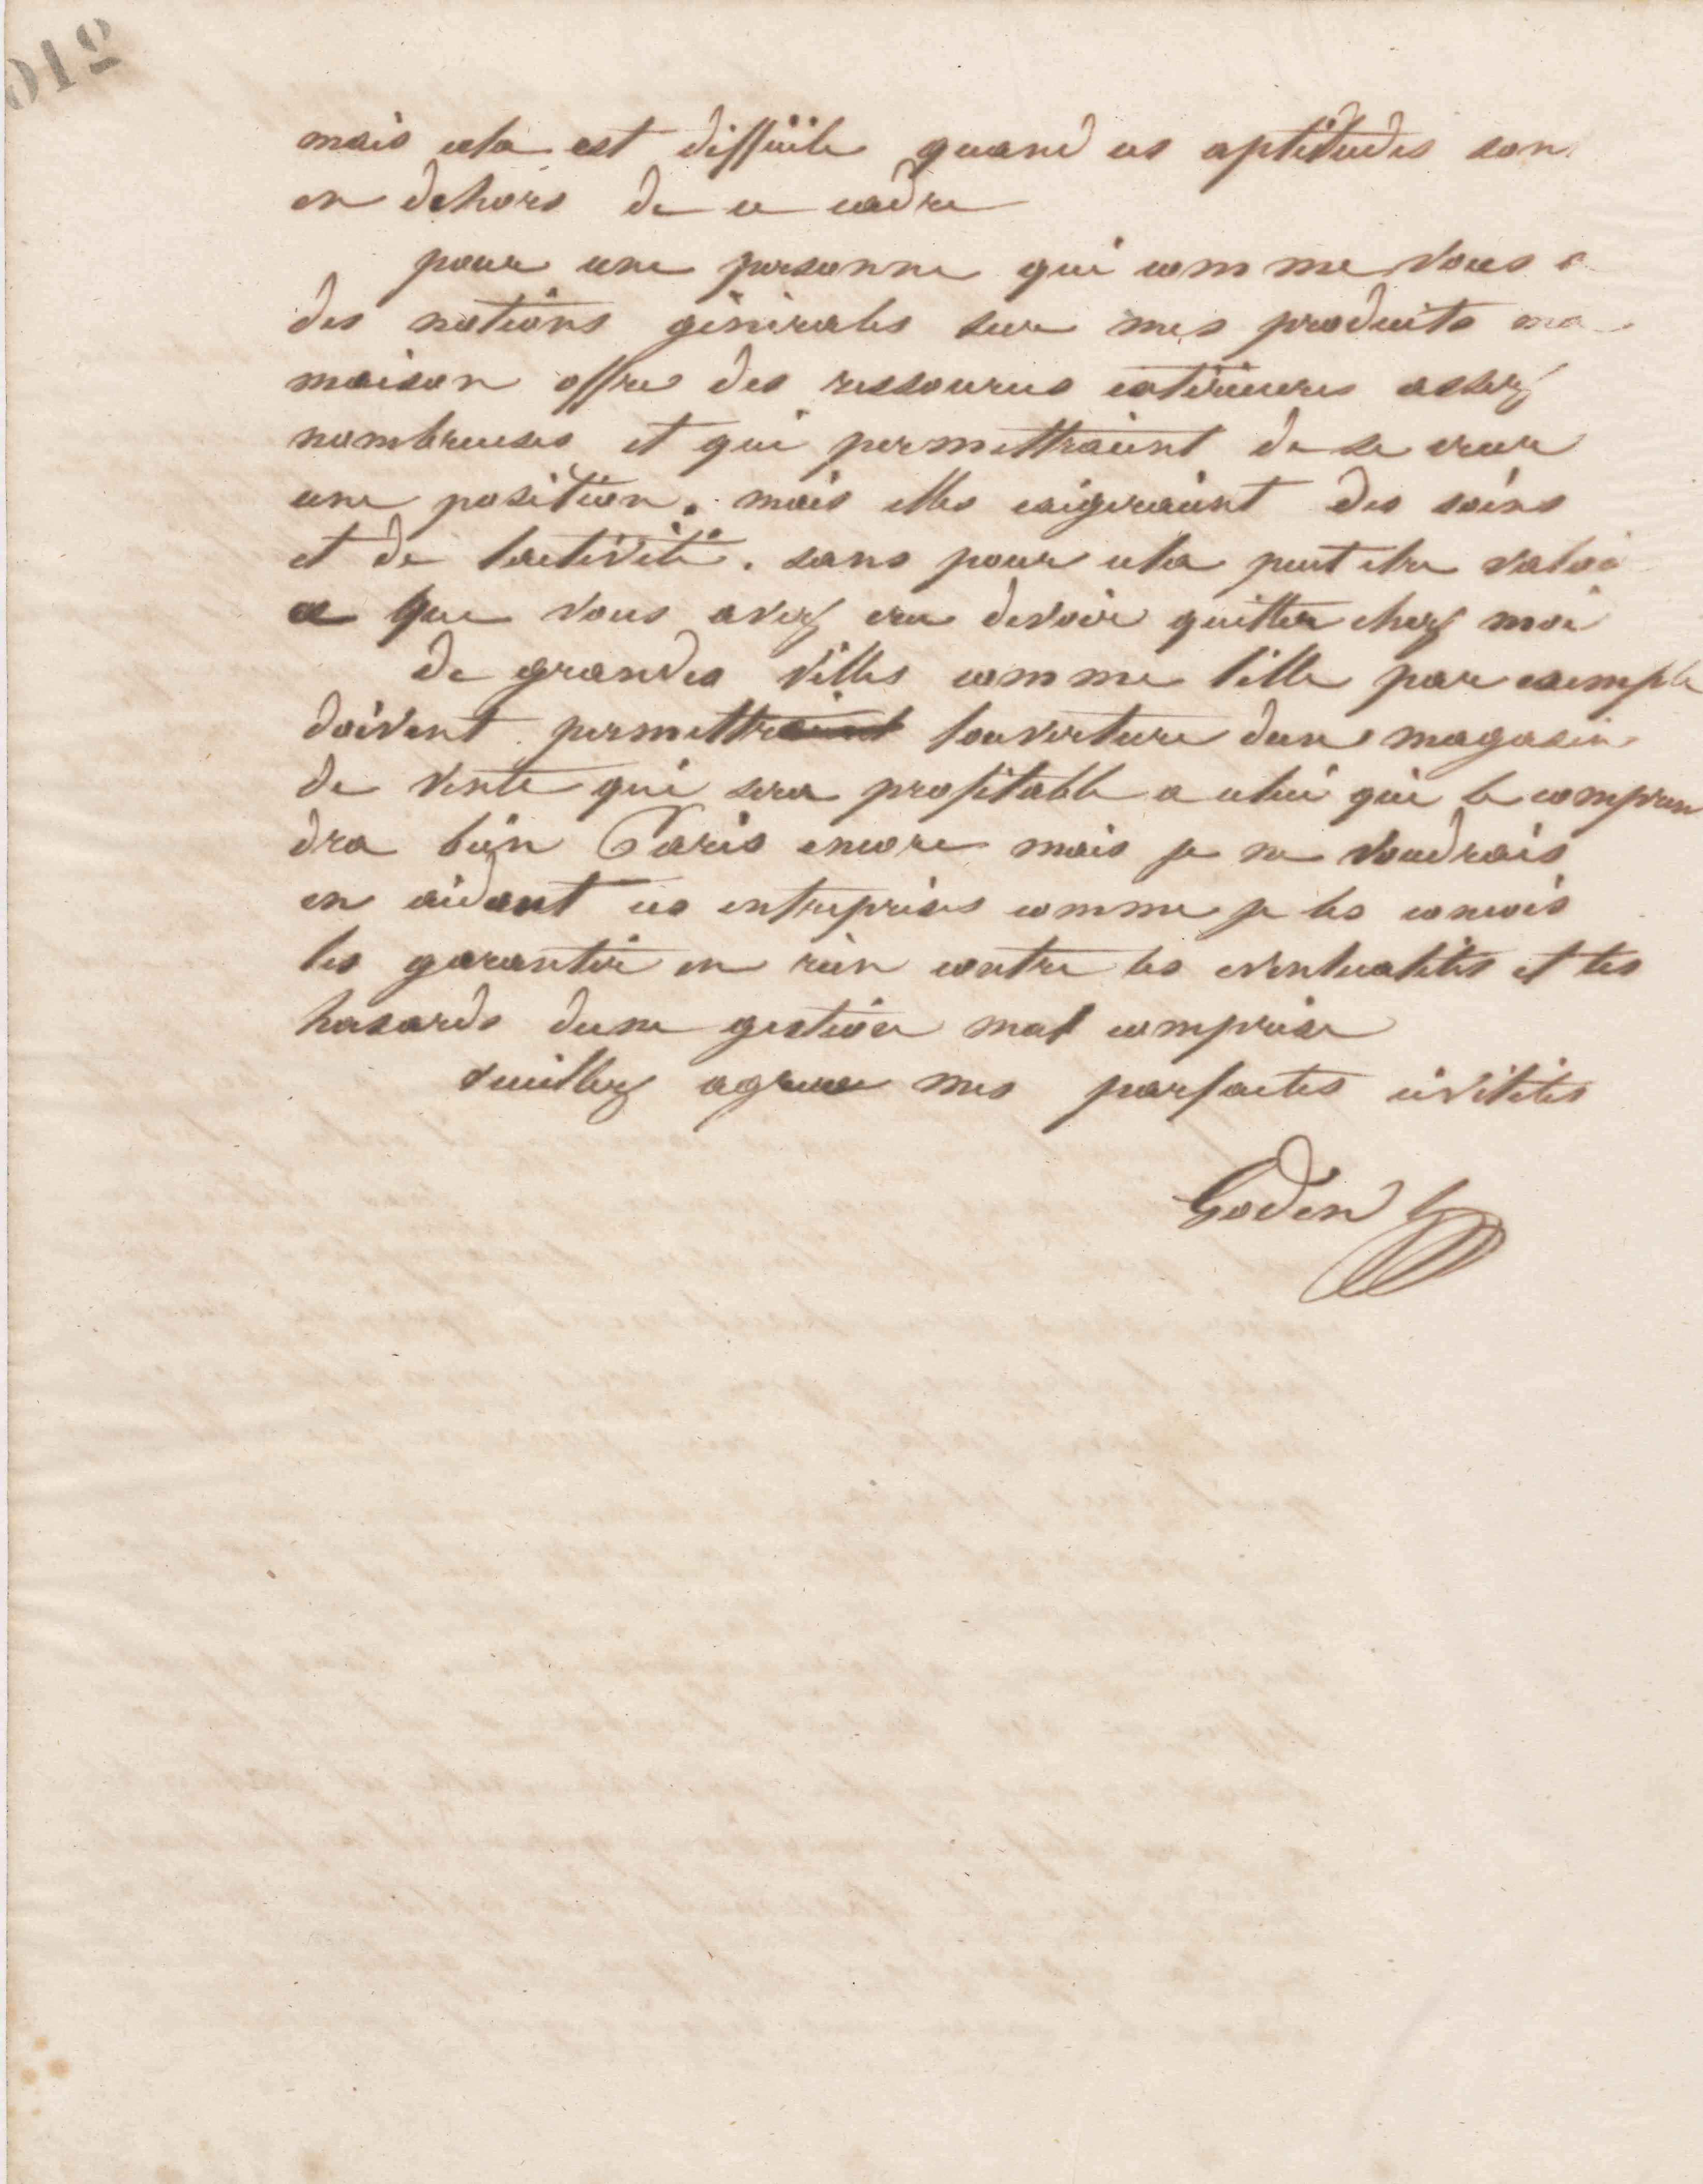 210
mais cela est difficile quand ces aptitudes son
en dehors de ce cadre
pour une personne qui comme vous a
des notions générales sur mes produits ma
maison offre des ressources extérieures assez
nombreuses et qui permettraient de se créer
une position. mais elles exigeraient des soins
et de lactivité. sans pour cela peut etre valoir
ce que vous avez cru devoir quitter chez moi
de grandes villes comme lille par exemple
doivent permettraient louverture dun magasin
de vente qui sera profitable a celui qui le compren
dra bien Paris encore mais je ne voudrais
en aidant ces entreprises comme je les concois
les garantir en rien contre les eventualités et les
hasards dune gestion mal comprise
veuillez agreer mes parfaites civilités
Godin